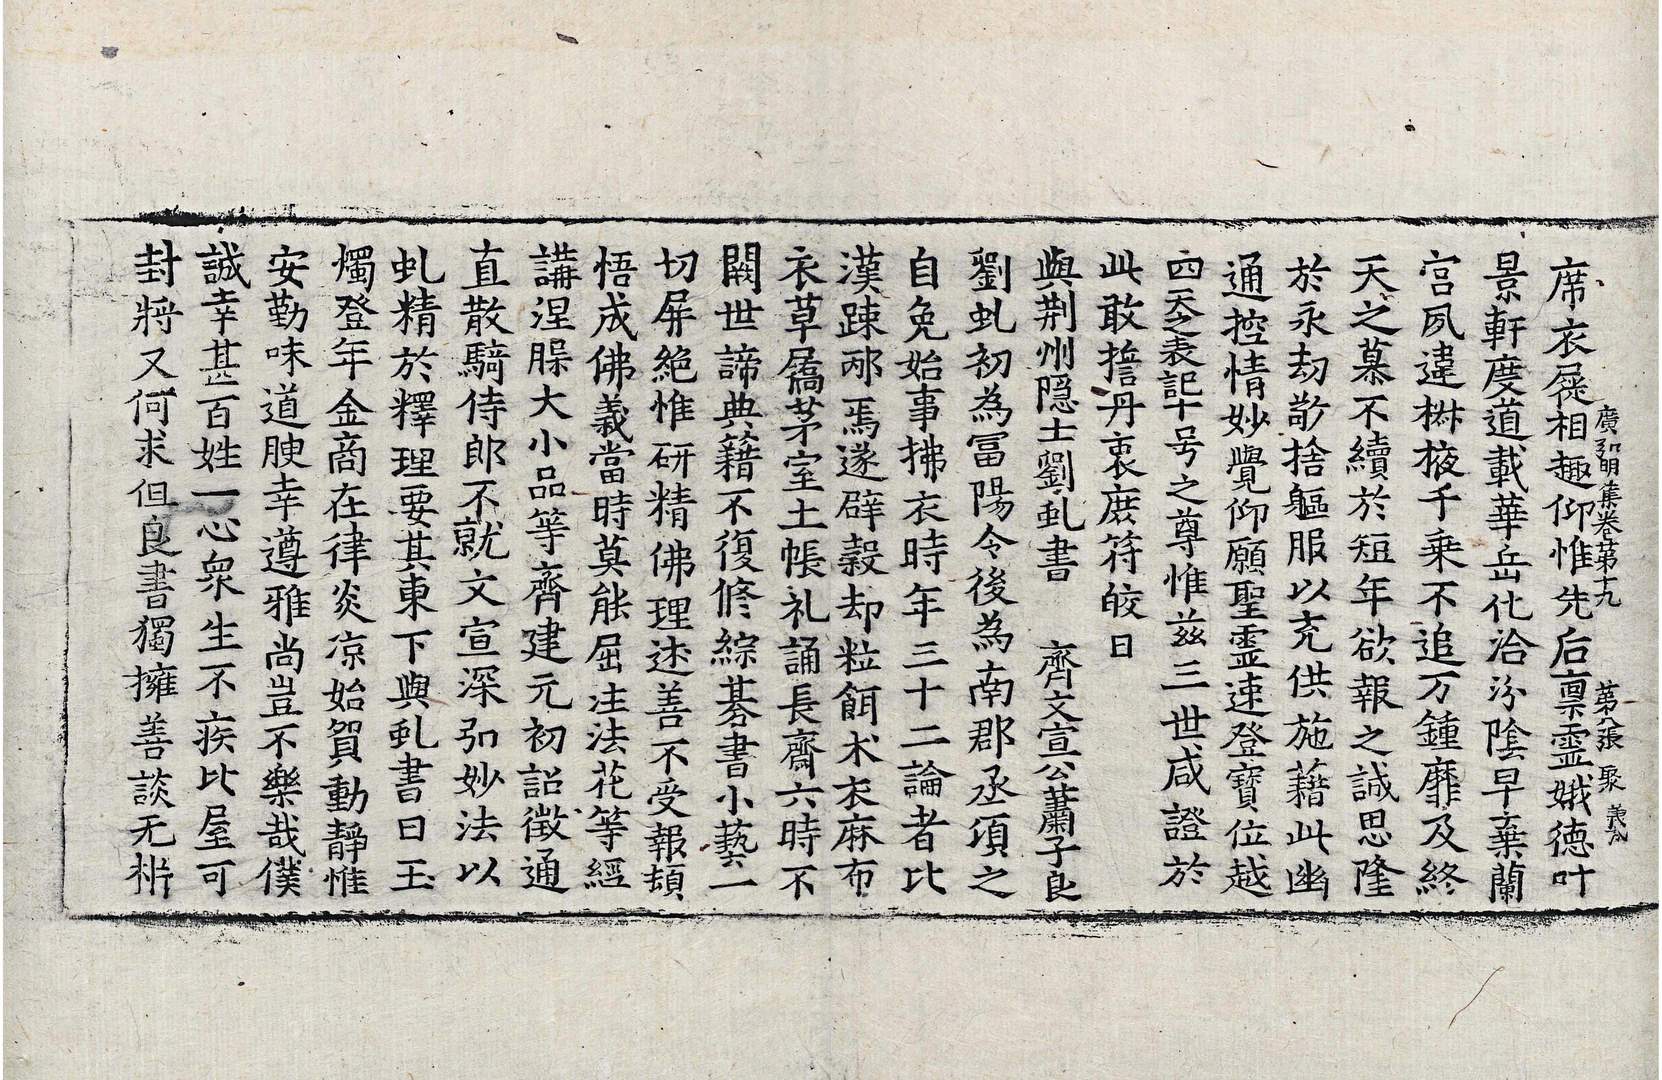 廣弘明集卷第十九 第八張 聚
席衣屣相趣仰惟先后禀靈娥德叶
景軒度道載華岳化洽汾陰早棄蘭
宮夙違椒掖千乘不追万鍾靡及終
天之慕不續於短年欲報之誠思隆
於永劫敬捨軀服以充供施藉此幽
通控情妙覺仰願聖靈速登寶位越
四天之表記十号之尊惟兹三世咸證於
此敢擔丹衷庶符皎日
與荆州隱士劉虬書 齊文宣公蕭子良
劉虬初為冨陽令後為南郡丞項之
自免始事拂衣時年三十二論者比
漢踈邴焉遂辟穀却粒餌朮衣麻布
衣草屩茅室土帳礼誦長齋六時不
闕世諦典籍不復修綜碁書小藝一
切屏絶惟研精佛理述善不受報頓
悟成佛義當時莫能屈注法花等經
講涅槃大小品等齊建元初詔徵通
直散騎侍郎不就文宣深弘妙法以
虬精於釋理要其東下與虬書曰玉
燭登年金商在律炎凉始賀動靜惟
安勤味道腴幸遵雅尚豈不樂哉僕
誠幸甚百姓一心衆生不疾比屋可
封將又何求但良書獨擁善談无析